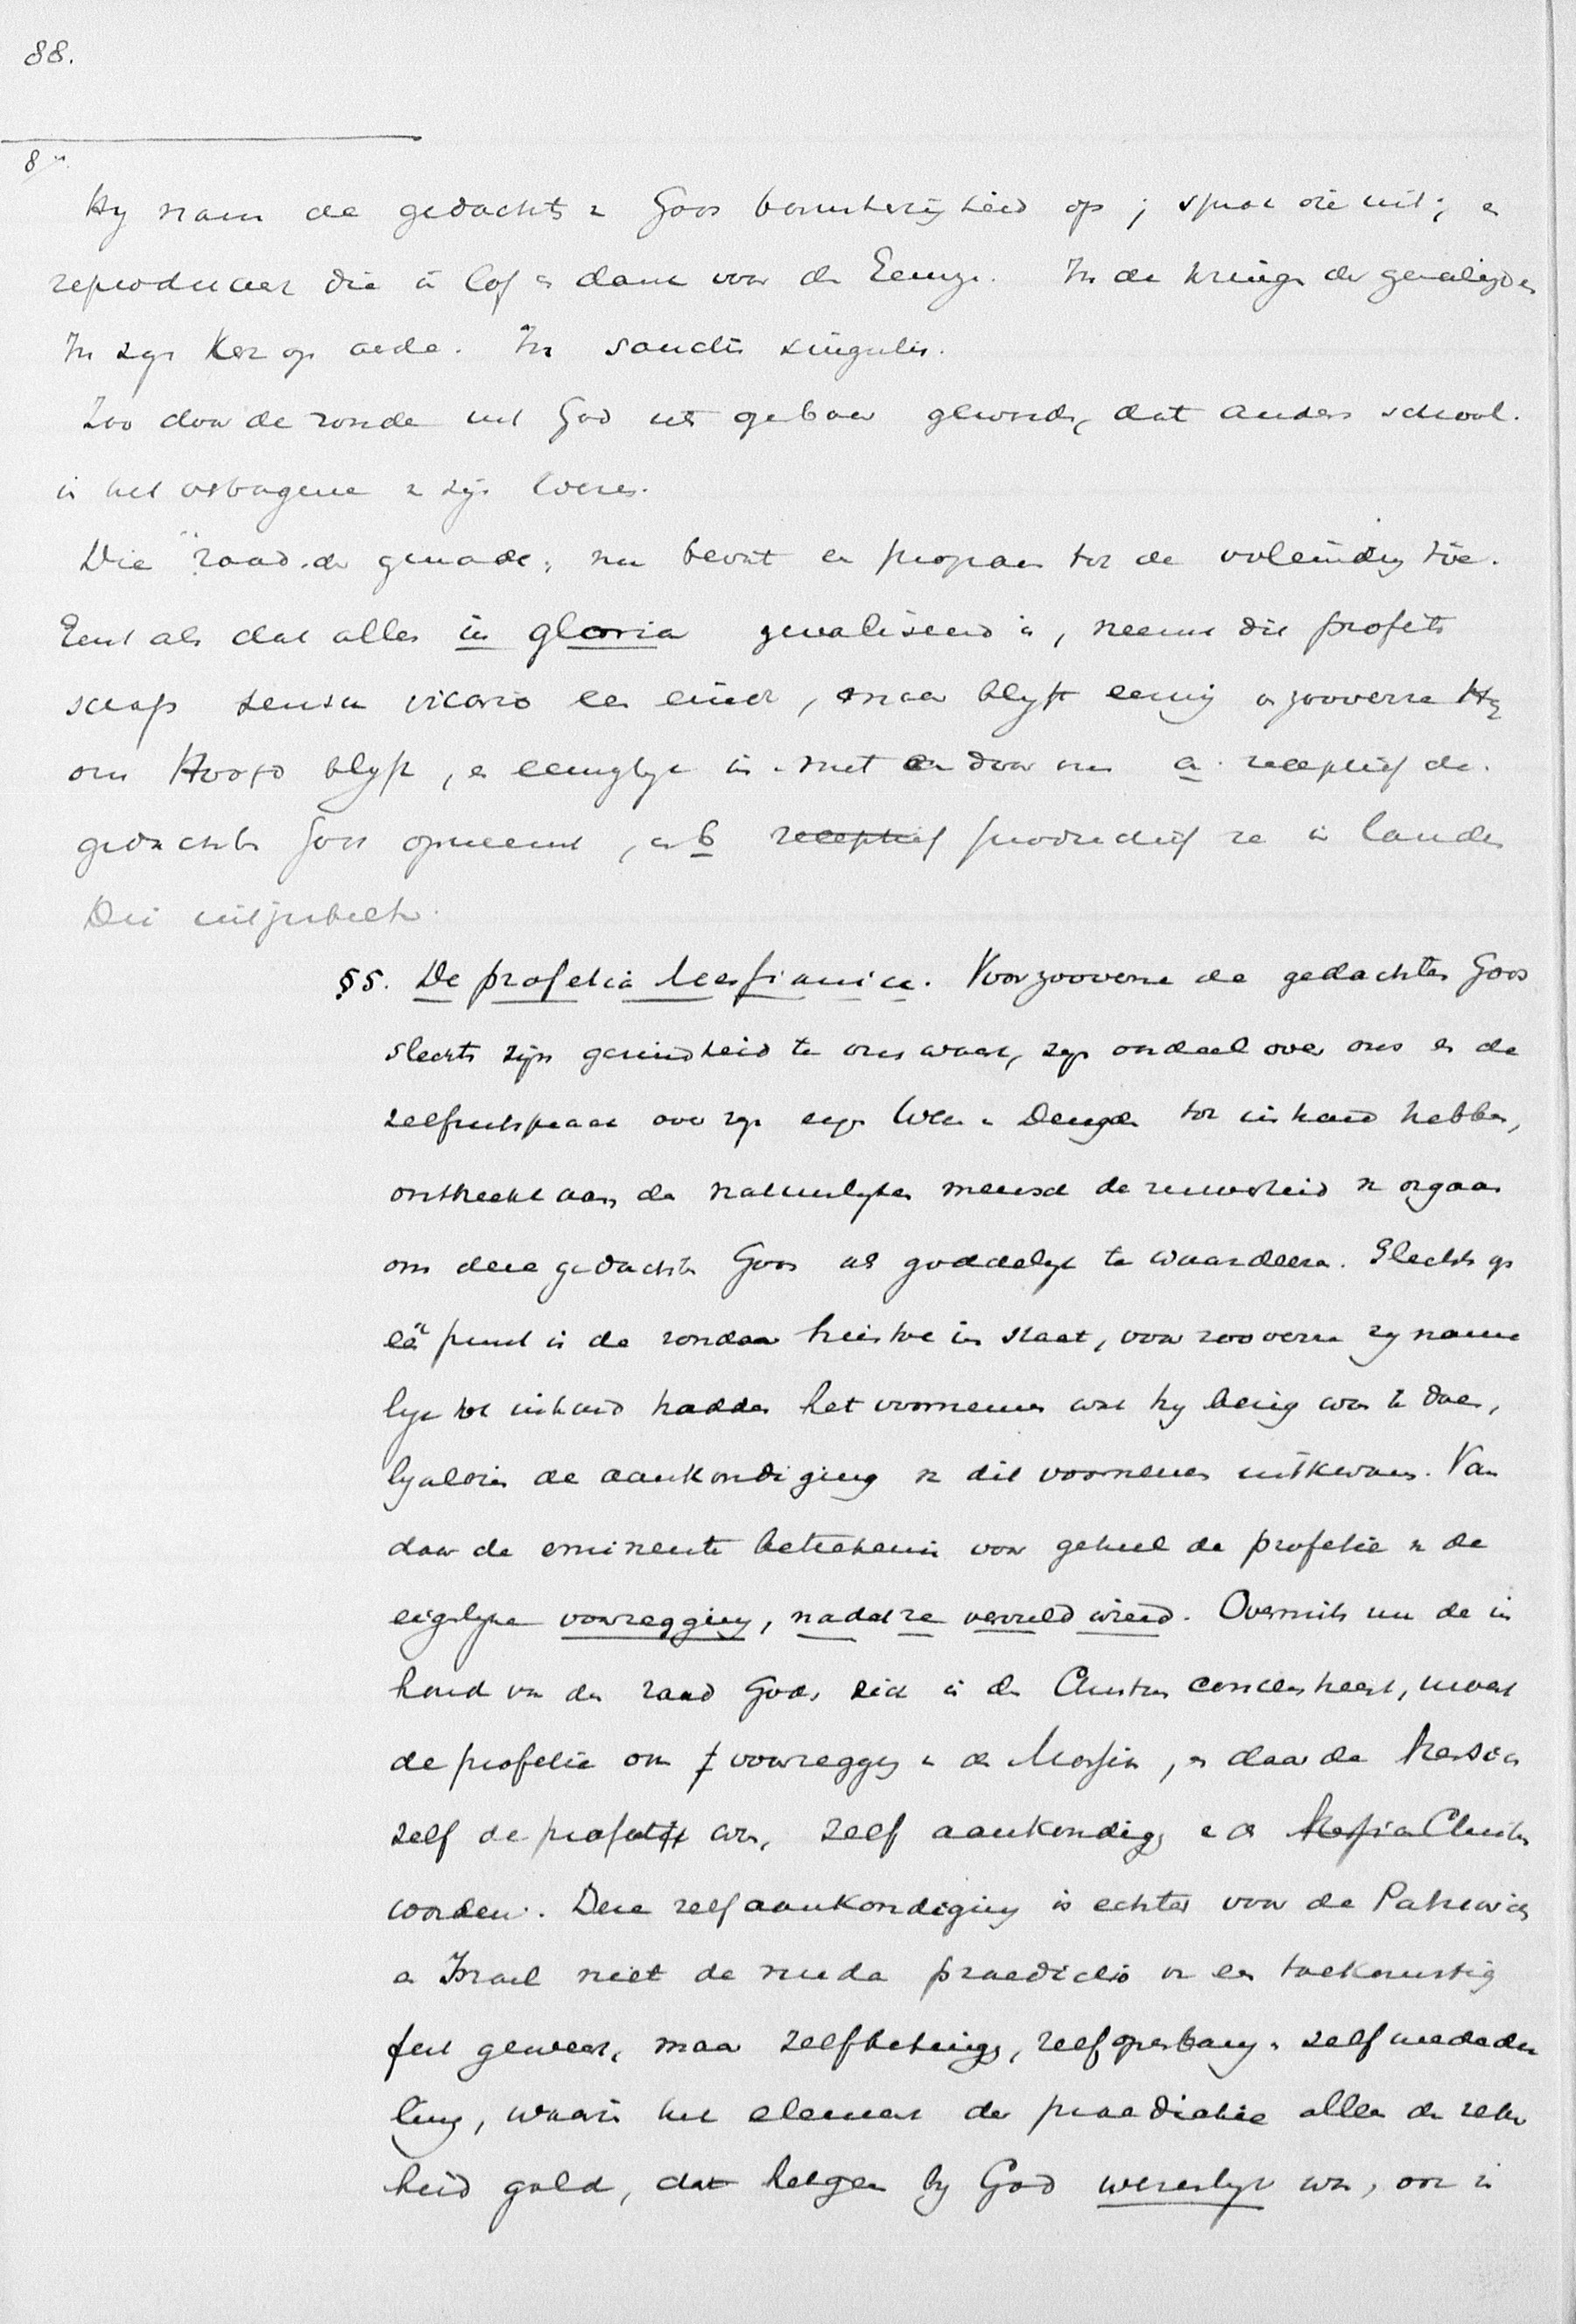 88.
8
Hy nam de gedachte Gods barmhartigheid op; sprak die uit; en
reproduceer die in lof en dank voor de Eeuwige. In de kringe der
In zyn Kerk op aarde. In sanctis singulis.
Zoo door de zonde uit God iets geworden, dat anders school
in het verborgene zijn
Die raad der genade, nu en tot de voleinding toe.
Eerst als dat alles in gloria gerealiseerd is, neemt dit profeto
schap sensu vicario een einde, maar blyft eeuwig zooverre Hy
ons Hoofd blyft, en eeuwiglyk in met en door ons a. receptief de
gedachte Gods opneemt, en b receptief productief ze in laudem
Dei uitjubelt.
§5. De profetia Messianica. Voorzooverre de gedachten Gods
slechts zijn gezindheid te onswaart, zyn oordeel over ons en de
zelfuitspraak over zyn eigen Wezen Deugden tot inhoud hebben,
ontbreekt aan den natuurlyken mensch de zuiverheid v orgaan
om deze gedachte Gods als goddelyk te waardeeren. Slechts op
één punt is de zondaar hiertoe in staat, voor zooverre zy name
lyk tot inhoud hadden het voornemen wat hy bezig was te doen,
byaldien de aankondiging v dit voornemen uitkwam. Van
daar de eminente beteekenis voor geheel de profetie v de
eigelyke voorzegging, nadat ze vervuld wierd. Overmits nu de in
houd van den raad Gods zich in den Christus concentreert, moest
de profetie voorzegging v de Messias, en daar de Messias
zelf de profeet was, zelf aankondiging v d Messias Christus
worden. Deze zelfaankondiging is echter voor de Patriarchen
en Israel niet de nuda praedictio v een toekomstig
feit geweest, maar zelfbetuiging, zelfopenbaring en zelfmededee
ling, waarin het element der praedictie alleen der zeker
heid gold, dat hetgeen by God wezenlyk was, ook in